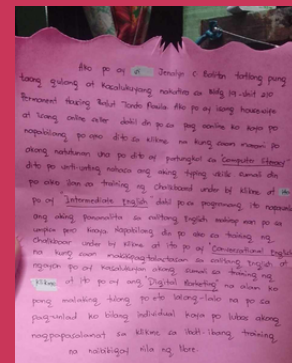 Ako po ay si Jenalyn C Bolitin tatlong pung
taong gulang at Kasalukuyang nakatira sa Bldg 19-unit 210
Permanent Housing Balut Tondo Manila. Ako po ay isang housewife
at isang online seller dahil din po sa pag oonline ko kaya po
napabilang po ako dito sa klikme na kung saan marami po
akong natutunan una po dito ay patungkol sa Computer literacy
dito po unti-unting nahasa ang aking typing skills sumali din
po ako doon sa training ng Chalkboard under by klikme at ito
po ay Intermediate English dahil po sa programang ito napahusay
ang aking pananalita sa salitang English maiksi man po sa
umpisa pero kinaya nagpabilang din po ako sa training ng
Chalkboard under by klikme at ito po ay Conversational English
na kung saan makikipagtalastasan sa salitang English at
ngayon po ay kasalukuyan akong sumali sa training ng
klikme at ito po ay ang Digital Marketing na alam ko
pong malaking tulong po ito lalong-lalo na po sa
pag-unlad ko bilang individual kaya po lubos akong
nagpapasalamat sa klikme sa ibat-ibang training
na naibabigay nila ng libre.